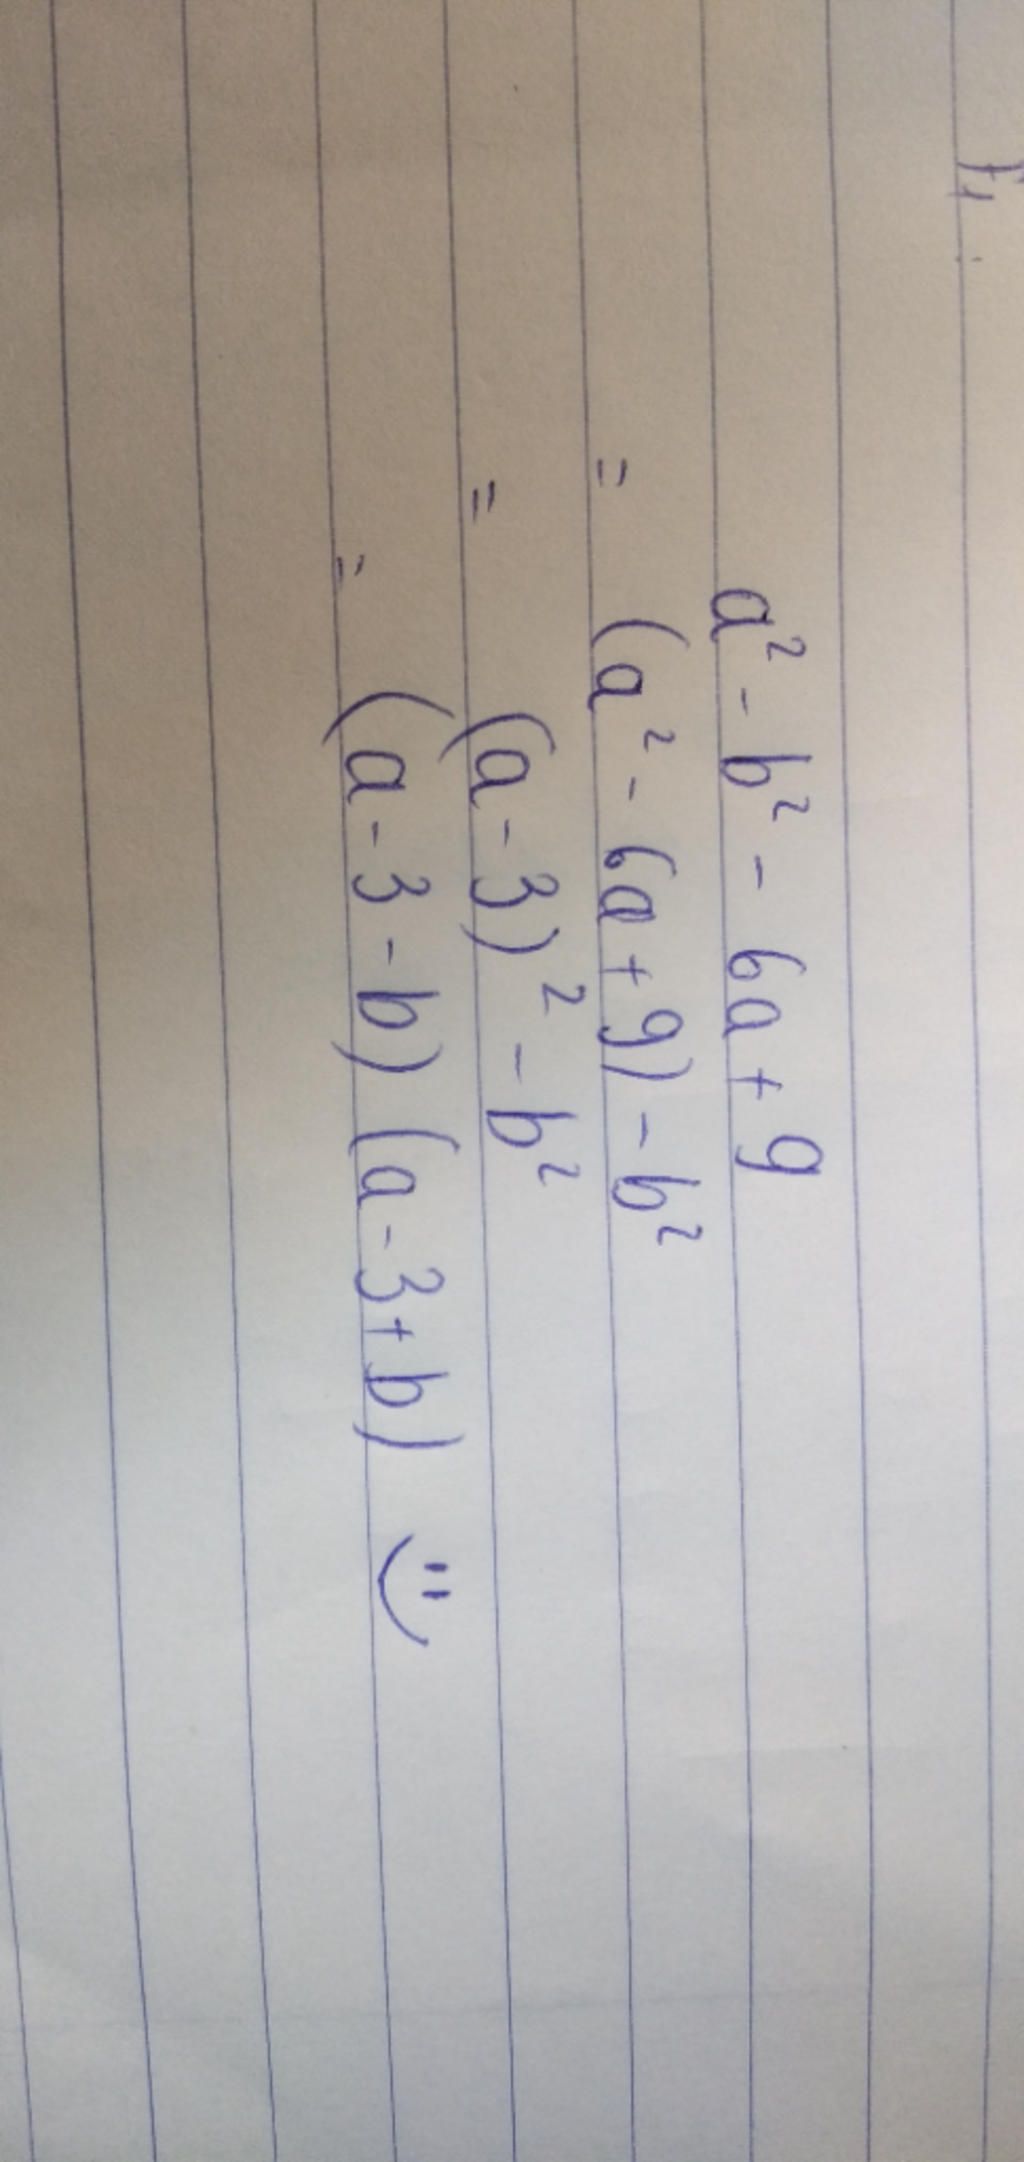 a² - b² - 6a + 9
= (a² - 6a + 9) - b²
= (a - 3)² - b²
= (a - 3 - b) (a - 3 + b) :)